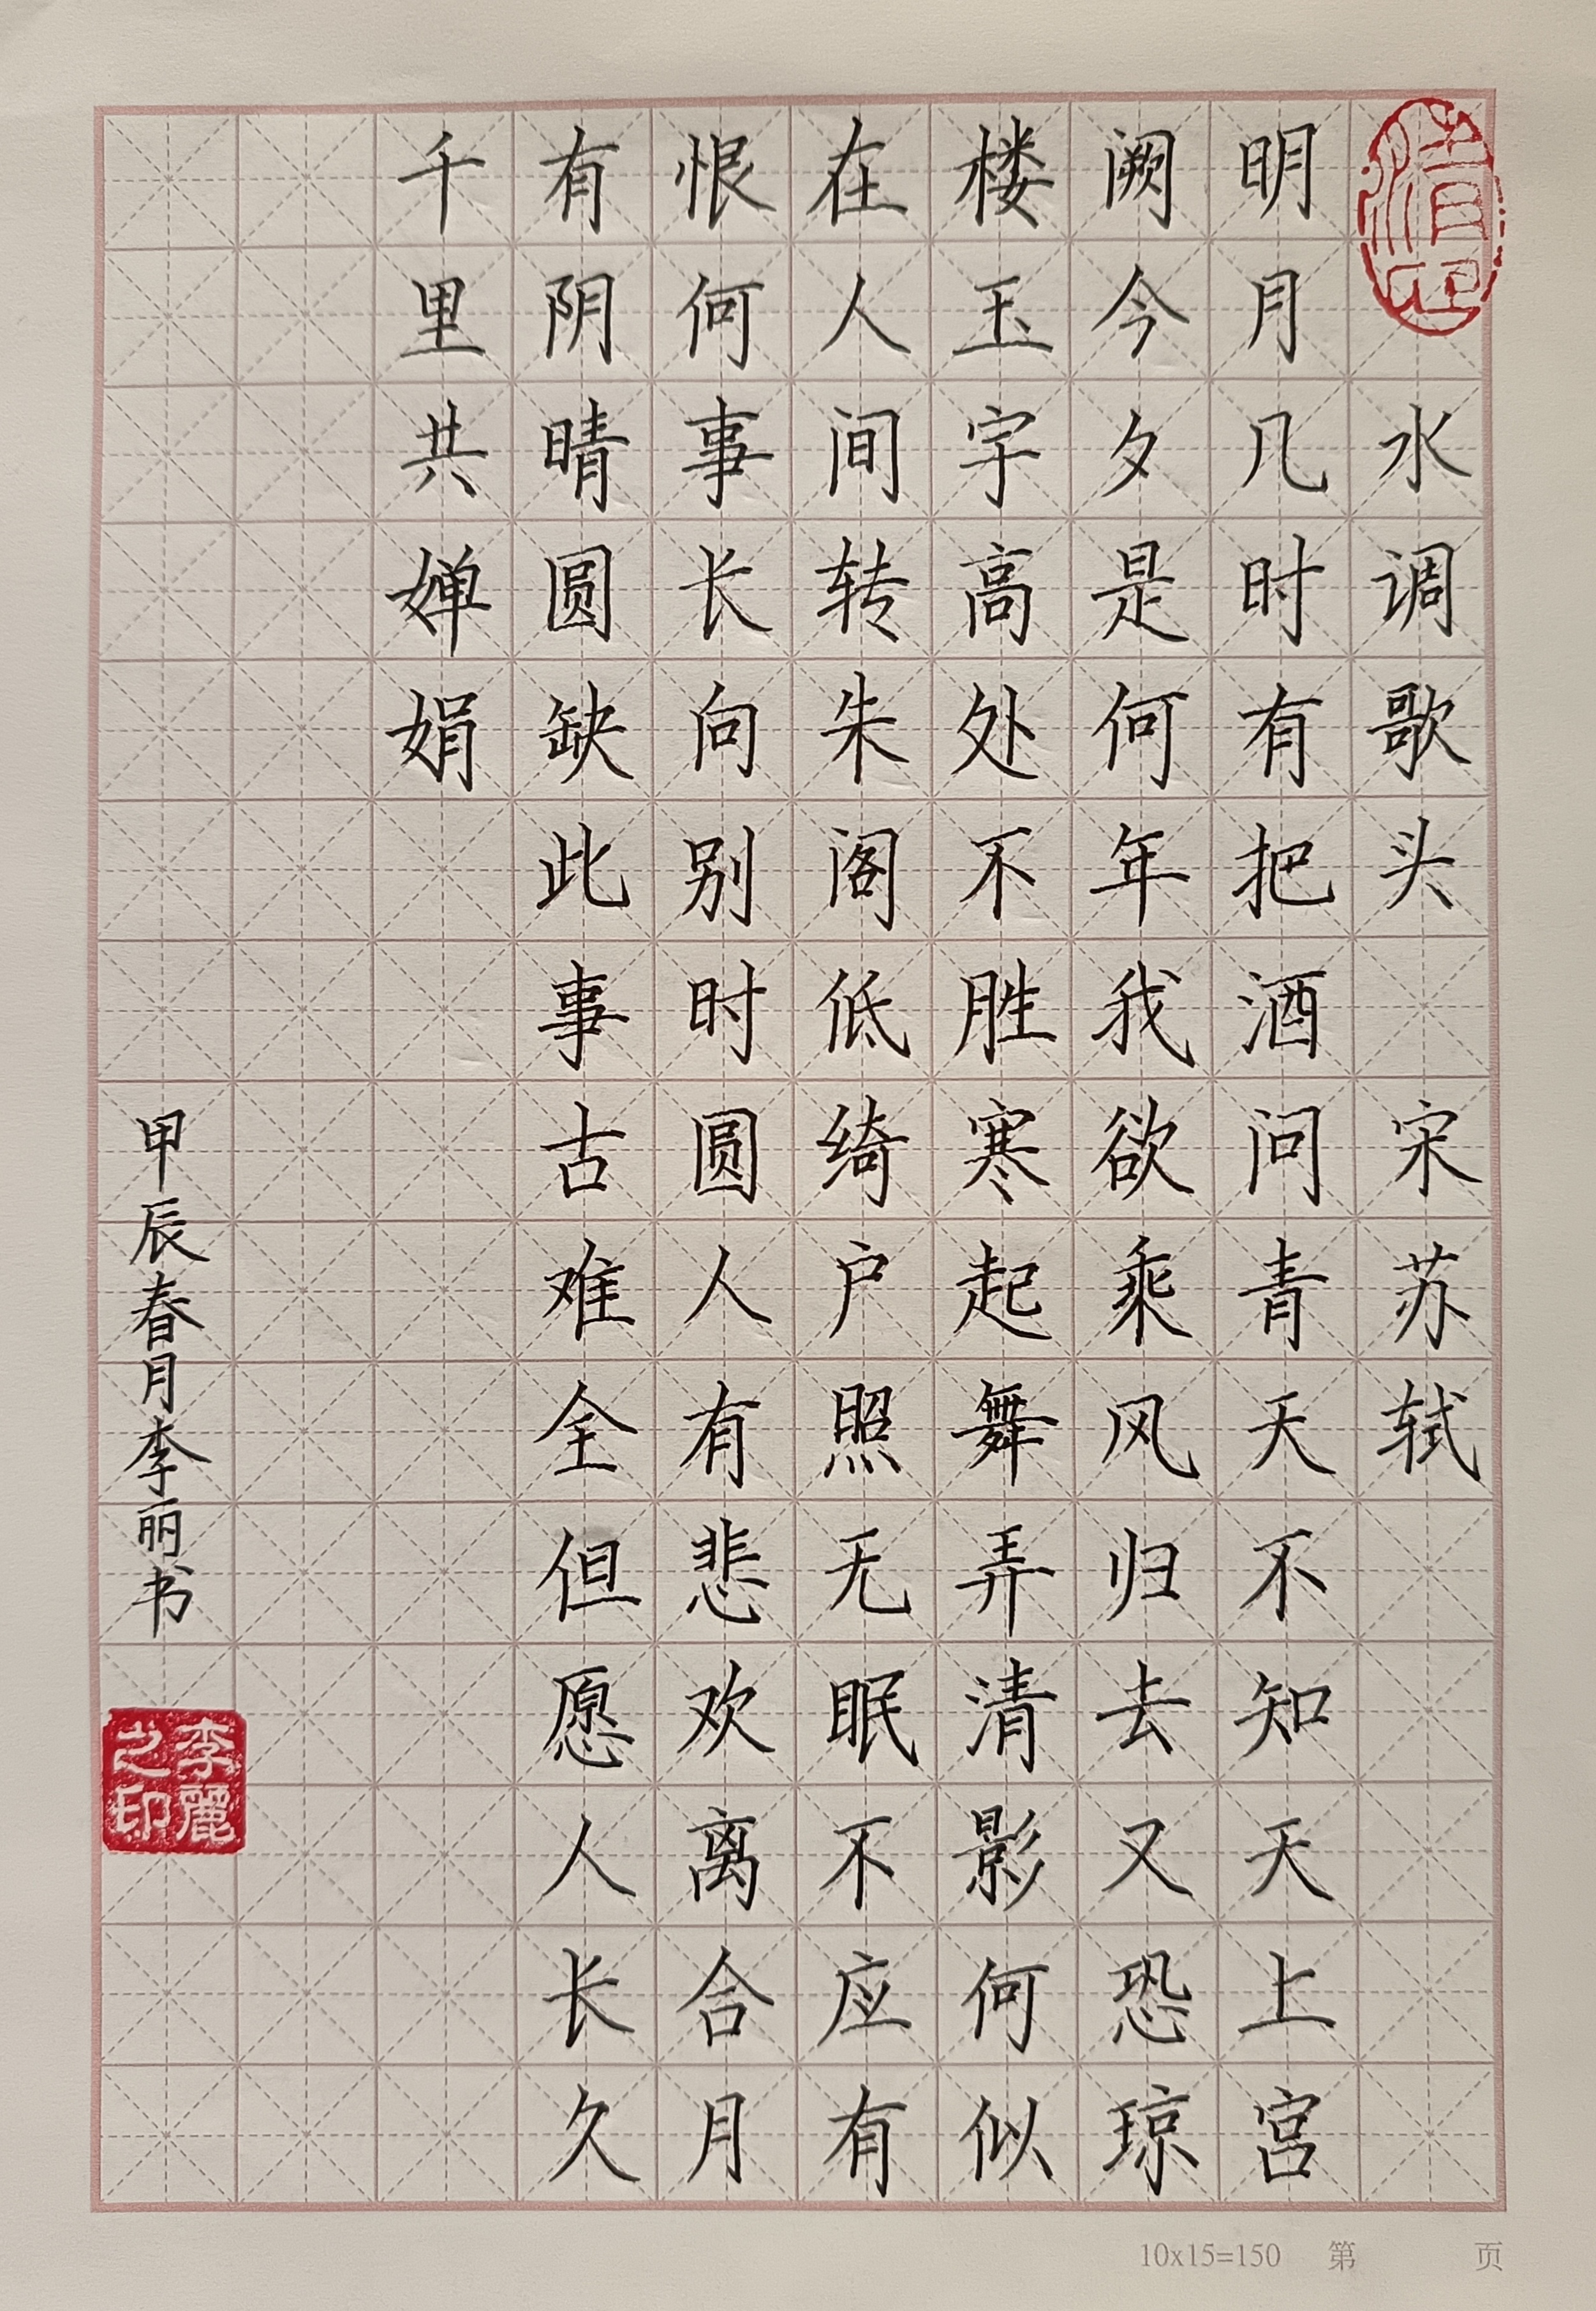 水调歌头 宋 苏轼
明月几时有把酒问青天不知天上宫
阙今夕是何年我欲乘风归去又恐琼
楼玉宇高处不胜寒起舞弄清影何似
在人间转朱阁低绮户照无眠不应有
恨何事长向别时圆人有悲欢离合月
有阴晴圆缺此事古难全但愿人长久
千里共婵娟
甲辰春月李丽书
李麗之印
10x15=150 第 页